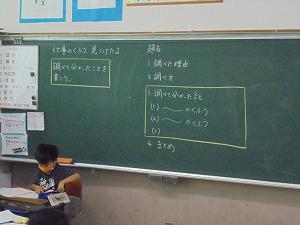 仕事のくふう、見つけたよ
調べて分かったことを
書こう。
題名
1 調べた理由
2 調べ方
3 調べて分かったこと
(1) 〜 のくふう
(2) 〜 のくふう
(3)
4 まとめ